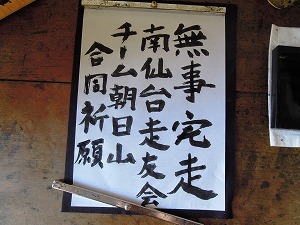 無事完走
南仙台走友会
チーム朝日山
合同祈願